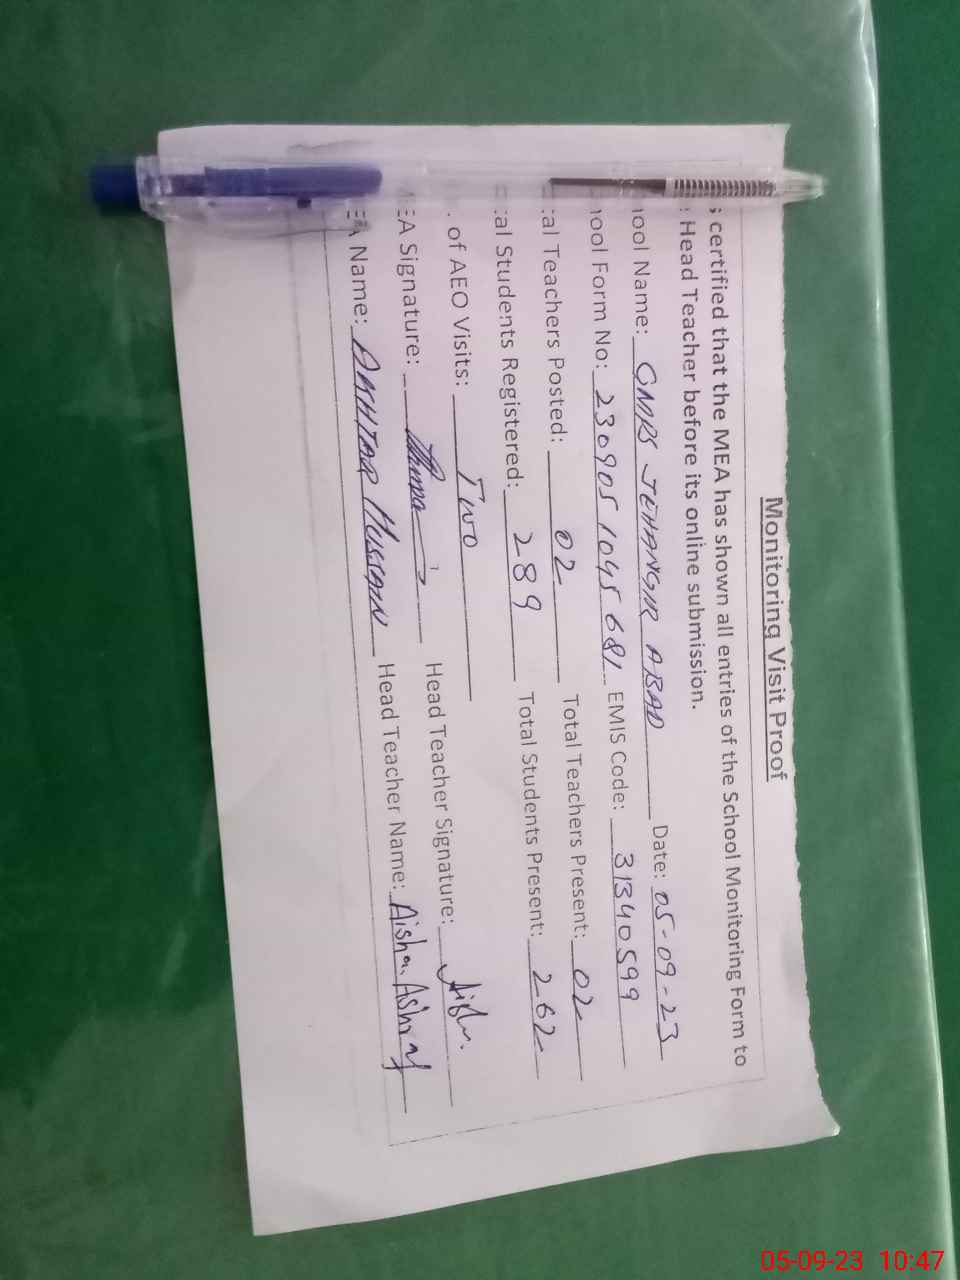 Monitoring Visit Proof
s certified that the MEA has shown all entries of the School Monitoring Form to
: Head Teacher before its online submission.
ool Name: GMPS JEHANGIR ABAD Date: 05-09-23
ool Form No: 230905 1045 681 EMIS Code: 31340599
:al Teachers Posted: 02 Total Teachers Present: 02
:al Students Registered: 289 Total Students Present: 262
. of AEO Visits: Two
EA Signature: Head Teacher Signature:
EA Name: AKHTAR HUSSAIN Head Teacher Name: Aisha Ashraf
05-09-23 10:47